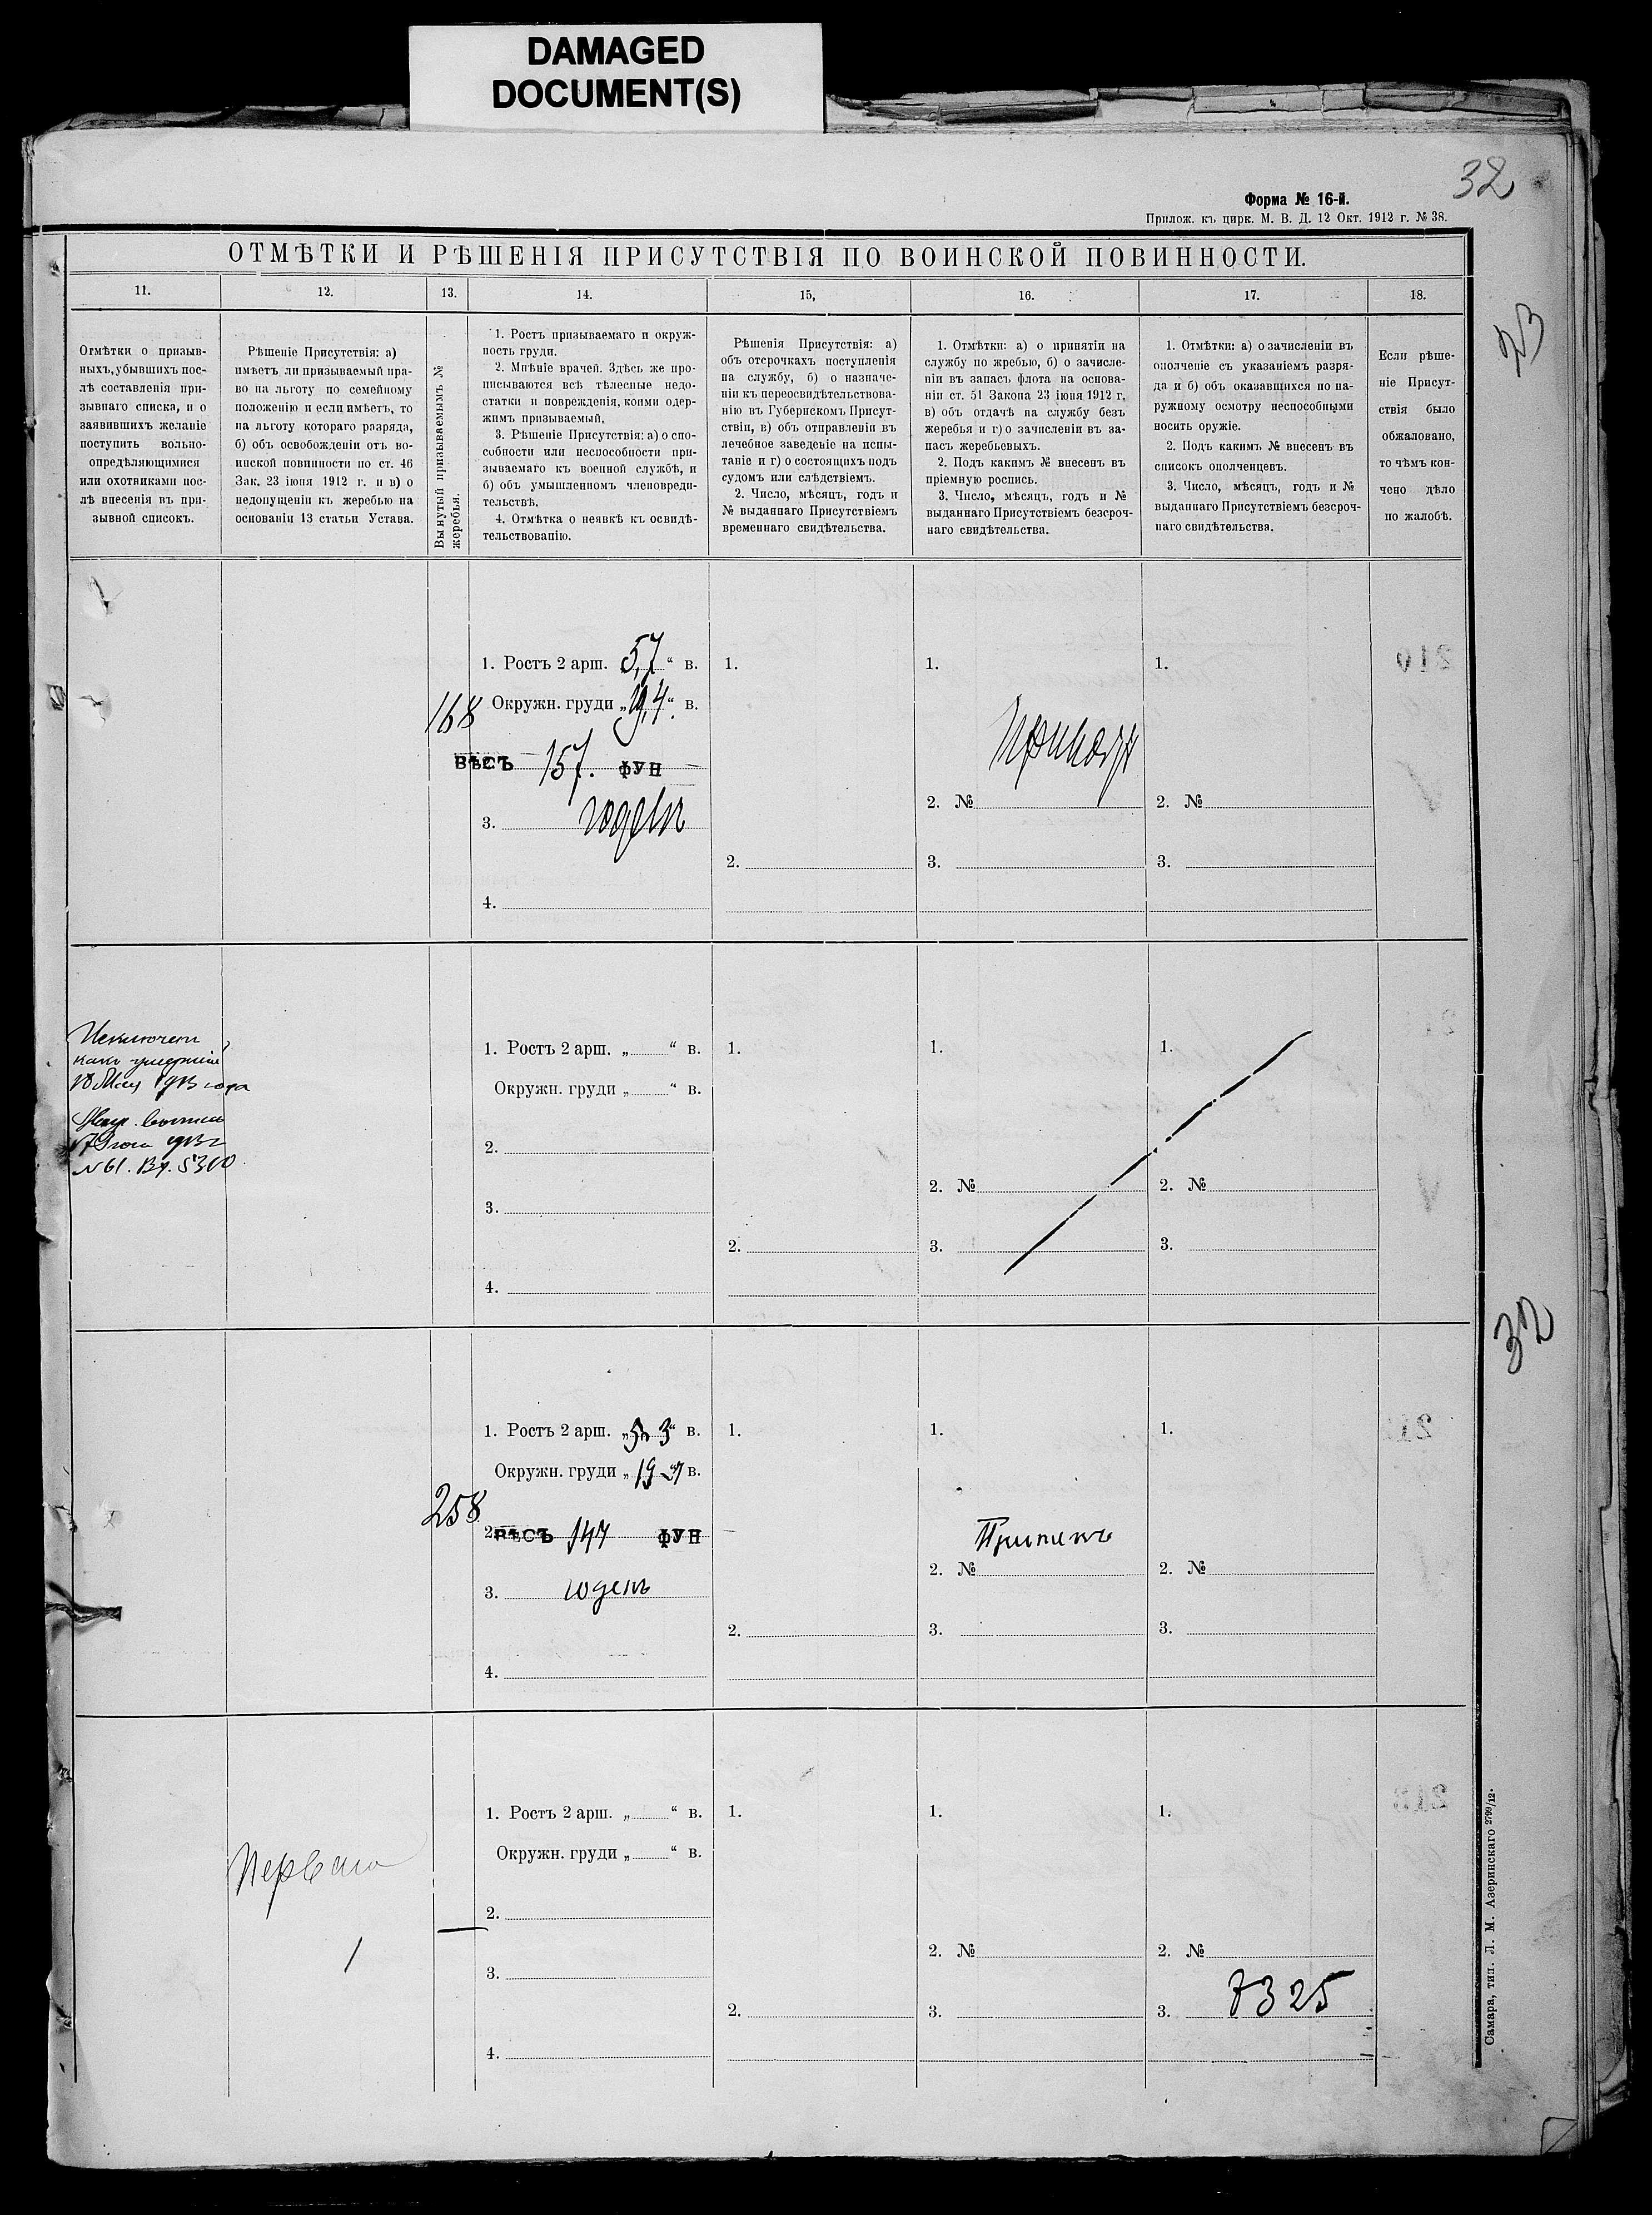 DAMAGED
DOCUMENT(S)
32
Форма № 16-й.
Прилож. къ цирк. М. В. Д. 12 Окт. 1912 г. № 38.
ОТМѢТКИ И РѢШЕНІЯ ПРИСУТСТВІЯ ПО ВОИНСКОЙ ПОВИННОСТИ.
11. 12. 13. 14. 15, 16. 17. 18.
Отмѣтки о призыв-
ныхъ, убывшихъ пос-
лѣ составленія при-
зывнаго списка, и о
заявившихъ желаніе
поступить вольно-
опредѣляющимися
или охотниками пос-
лѣ внесенія въ при-
зывной списокъ.
Рѣшеніе Присутствія: а)
имѣетъ ли призываемый пра-
во на льготу по семейному
положенію и если имѣетъ, то
на льготу котораго разряда,
б) объ освобожденіи отъ во-
инской повинности по ст. 46
Зак. 23 іюня 1912 г. и в) о
недопущеніи къ жеребью на
основаніи 13 статьи Устава.
Вынутый призываемымъ №
жеребья.
1. Ростъ призываемаго и окруж-
ность груди.
2. Мнѣніе врачей. Здѣсь же про-
писываются всѣ тѣлесные недо-
статки и поврежденія, коими одер-
жимъ призываемый,
3. Рѣшеніе Присутствія: а) о спо-
собности или неспособности при-
зываемаго къ военной службѣ, и
б) объ умышленномъ членовреди-
тельствѣ.
4. Отмѣтка о неявкѣ къ освидѣ-
тельствованію.
Рѣшенія Присутствія: а)
объ отсрочкахъ поступленія
на службу, б) о назначе-
ніи къ переосвидѣтельствова-
нію въ Губернскомъ Присут-
ствіи, в) объ отправленіи въ
лечебное заведеніе на испы-
таніе и г) о состоящихъ подъ
судомъ или слѣдствіемъ.
2. Число, мѣсяцъ, годъ и
№ выданнаго Присутствіемъ
временнаго свидѣтельства.
1. Отмѣтки: а) о принятіи на
службу по жребью, б) о зачисле-
ніи въ запасъ флота на основа-
ніи ст. 51 Закона 23 іюня 1912 г.
в) объ отдачѣ на службу безъ
жеребья и г) о зачисленіи въ за-
пасъ жеребьевыхъ.
2. Подъ какимъ № внесенъ въ
пріемную роспись.
3. Число, мѣсяцъ, годъ и №
выданнаго Присутствіемъ безсроч-
наго свидѣтельства.
1. Отмѣтки: а) о зачисленіи въ
ополченіе съ указаніемъ разря-
да и б) объ оказавшихся по на-
ружному осмотру неспособными
носить оружіе.
2. Подъ какимъ № внесенъ въ
списокъ ополченцевъ.
3. Число, мѣсяцъ, годъ и №
выданнаго Присутствіемъ безсроч-
наго свидѣтельства.
Если рѣше-
ніе Присут-
ствія было
обжаловано,
то чѣмъ кон-
чено дѣло
по жалобѣ.
1. Ростъ 2 арш. 5,7 “ в. 1. 1. 1.
168 Окружн. груди „ 19,4 “ в.
ВѢСЪ 157. ФУН
Принятъ
2. № 2. №
3. годенъ
2. 3. 3.
4.
Исключенъ
какъ умершій
18 Мая 1913 года
17 Іюня 1913 г
№ 61. Вх. 5300
1. Ростъ 2 арш. „ “ в. 1. 1. 1.
Окружн. груди „ “ в.
2.
2. № 2. №
3.
2. 3. 3.
4.
32
1. Ростъ 2 арш. „ 5 3 “ в. 1. 1. 1.
Окружн. груди „ 19 7 в.
258
2. ВѢСЪ 147 ФУН
Принятъ
2. № 2. №
3. годенъ
2. 3. 3.
4.
1. Ростъ 2 арш. „ “ в. 1. 1. 1.
Окружн. груди „ “ в.
Перваго
2.
1
2. № 2. №
3.
7325
2. 3. 3.
4.
Самара, тип. Л. М. Азеринскаго 2799/12.